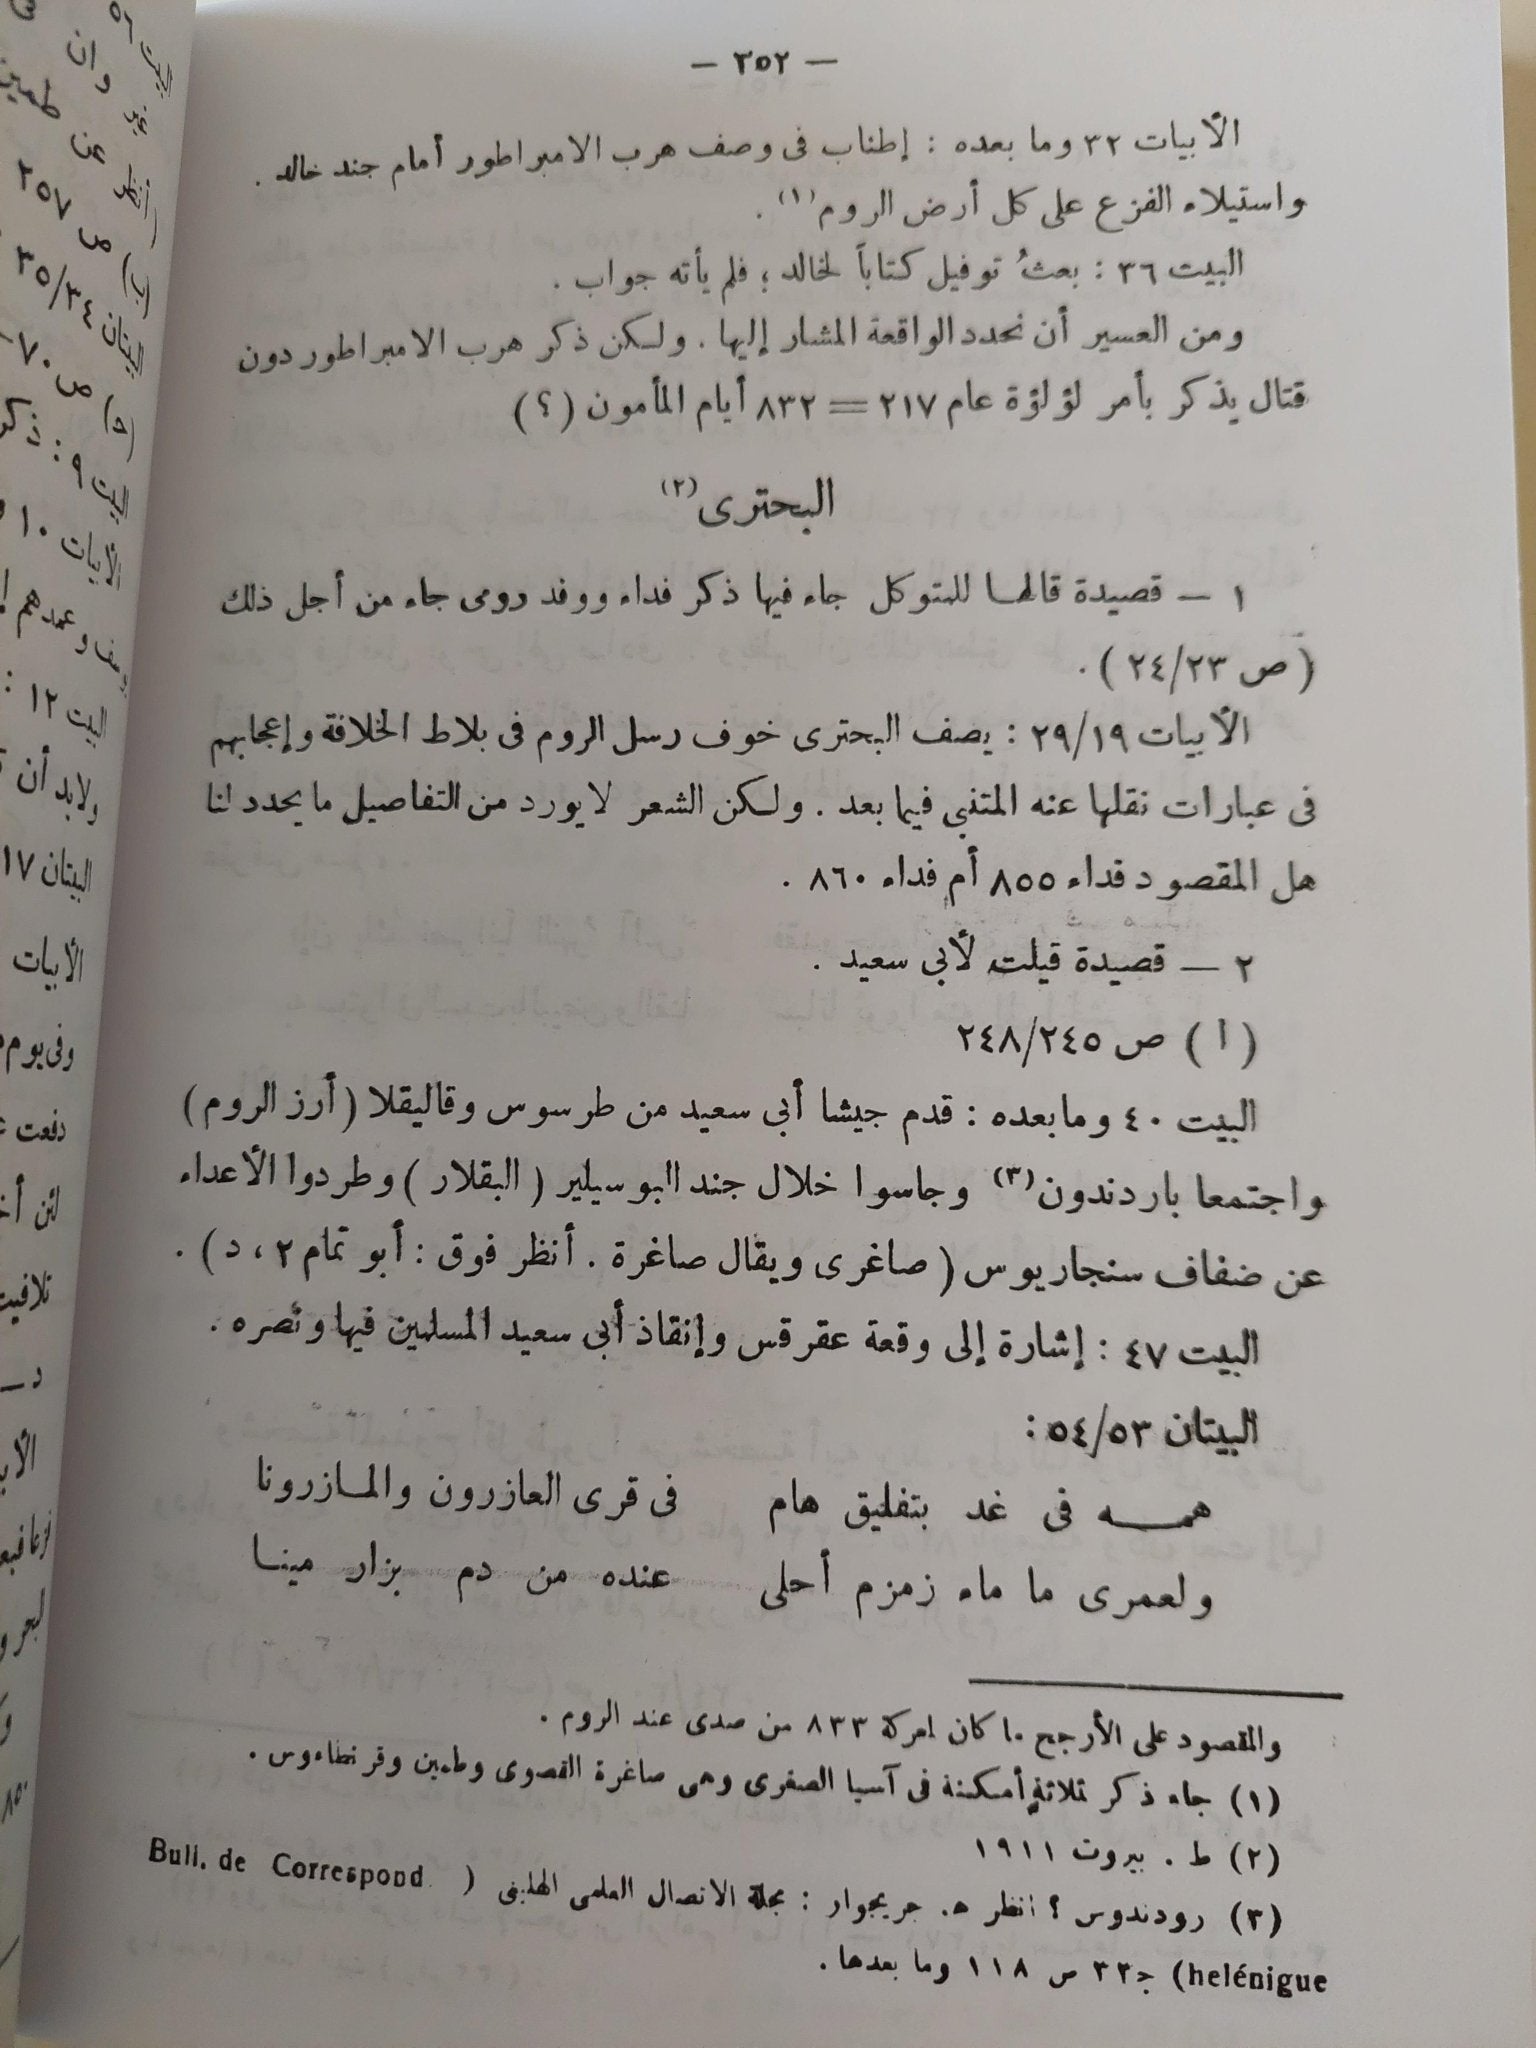 — ٣٥٢ —
الأبيات ٣٢ وما بعده : إطناب فى وصف هرب الامبراطور أمام جند خالد .
واستيلاء الفزع على كل أرض الروم (١) .
البيت ٣٦ : بعثُ توفيل كتاباً لخالد ؛ فلم يأته جواب .
ومن العسير أن نحدد الواقعة المشار إليها . ولكن ذكر هرب الامبراطور دون
قتال يذكر بأمر لؤلؤة عام ٢١٧ = ٨٣٢ أيام المأمون (؟)
البحترى (٢)
١ — قصيدة قالها للمتوكل جاء فيها ذكر فداء ووفد رومى جاء من أجل ذلك
( ص ٢٤/٢٣ ) .
الأبيات ٢٩/١٩ : يصف البحترى خوف رسل الروم فى بلاط الخلافة وإعجابهم
فى عبارات نقلها عنه المتنبي فيما بعد . ولكن الشعر لا يورد من التفاصيل ما يحدد لنا
هل المقصود فداء ٨٥٥ أم فداء ٨٦٠ .
٢ — قصيدة قيلت لأبي سعيد .
( ا ) ص ٢٤٨/٢٤٥
البيت ٤٠ وما بعده : قدم جيشا أبى سعيد من طرسوس وقاليقلا ( أرز الروم )
واجتمعا باردندون (٣) وجاسوا خلال جند البوسيلير ( البقلار ) وطردوا الأعداء
عن ضفاف سنجاريوس ( صاغرى ويقال صاغرة . أنظر فوق : أبو تمام ٢ ، د ) .
البيت ٤٧ : إشارة إلى وقعة عقرقس وإنقاذ أبى سعيد المسلمين فيها ونصره .
البيتان ٥٤/٥٣ :
همـــه فى غد بتفليق هام فى قرى العازرون والمـازرونا
ولعمرى ما ماء زمزم أحلى عنده من دم بزار مينـا
والمقصود على الأرجح ما كان لمعركة ٨٣٣ من صدى عند الروم .
(١) جاء ذكر ثلاثة أمكنة فى آسيا الصغرى وهى صاغرة القصوى وطمين وقرنطاءوس .
(٢) ط . بيروت ١٩١١
(٣) رودندوس ؟ انظر ه‍. جريجوار : مجلة الاتصال العلمى الهلينى ( Bull. de Correspond.
helénigue) ج٣٣ ص ١١٨ وما بعدها .